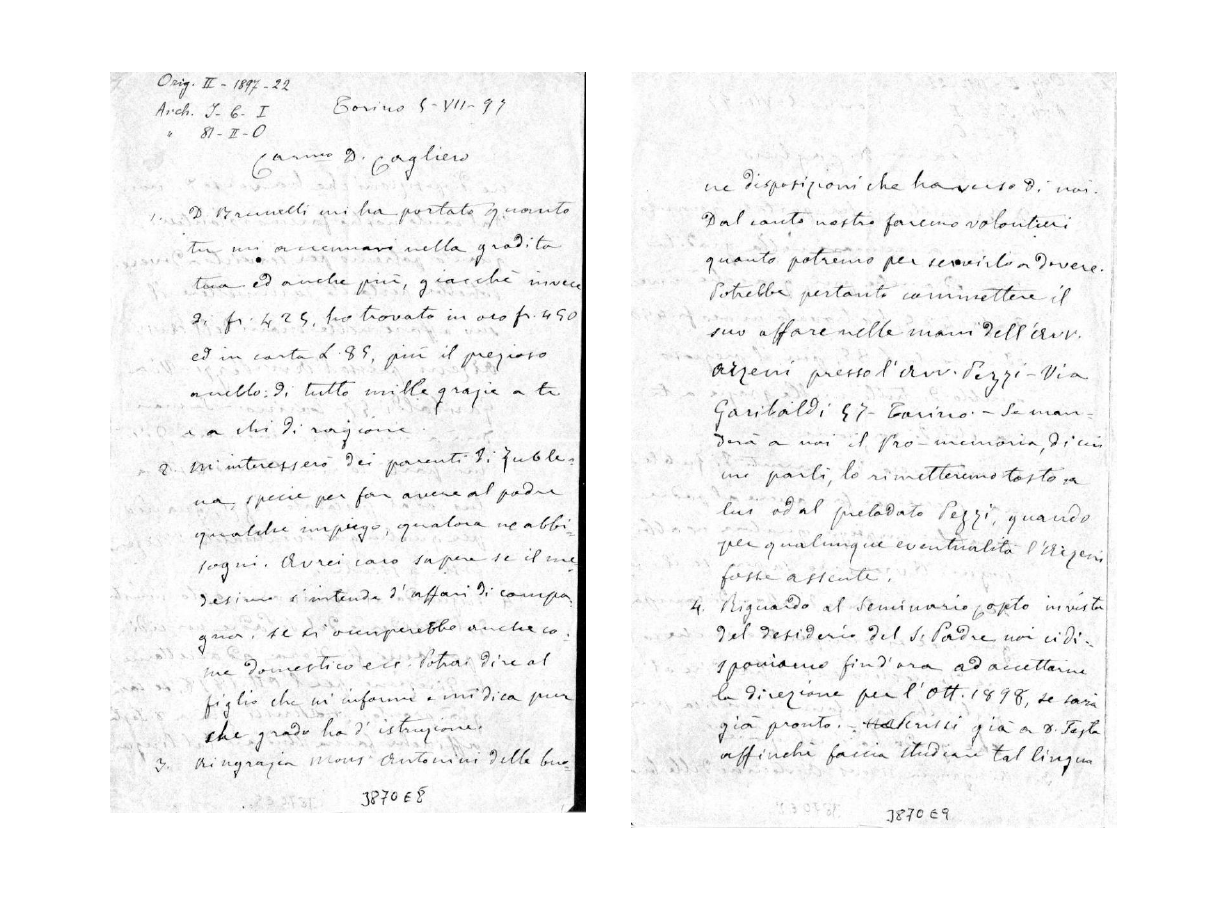 Orig. II - 1897 - 22
Arch. J - 6 - I
" 81 - II - O
Torino 5-VII-97
Car.mo D. Cagliero
1. D. Brunelli mi ha portato quanto
tu mi accennavi nella gradita
tua ed anche più, giacchè invece
di fr. 425, ho trovato in oro fr. 450
ed in carta L. 85, più il prezioso
anello: di tutto mille grazie a te
e a chi di ragione.
2. M'interesserò dei parenti di Zuble-
na, specie per far avere al padre
qualche impiego, qualora ne abbi-
sogni. Avrei caro sapere se il me-
desimo s'intende d'affari di campa-
gna, se si occuperebbe anche co-
me domestico ecc. Potrai dire al
figlio che ci informi e mi dica pur
che grado ha d'istruzione.
3. Ringrazia Mons. Antonini delle buo-
J870E8
ne disposizioni che ha verso di noi.
Dal canto nostro faremo volontieri
quanto potremo per servirlo a dovere.
Potrebbe pertanto commettere il
suo affare nelle mani dell'Avv.
Arzeni presso l'Avv. Pezzi - Via
Garibaldi 57 - Torino. - Se man-
derà a noi il Pro-memoria, di cui
me parli, lo rimetteremo tosto a
lui od al prelodato Pezzi, quando
per qualunque eventualità l'Arzeni
fosse assente.
4. Riguardo al Seminario copto in vista
del desiderio del S. Padre noi ci di-
sponiamo fin d'ora ad accettarne
la direzione per l'Ott. 1898, se sarà
già pronto. - scrissi già a D. Festa
affinchè faccia studiare tal lingua
J870E9